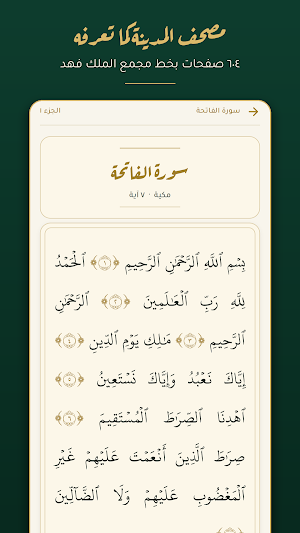 مصحف المدينة كما تعرفه
٦٠٤ صفحات بخط مجمع الملك فهد
سورة الفاتحة
الجزء ١
سورة الفاتحة
مكية · ٧ آية
بِسْمِ ٱللَّهِ ٱلرَّحْمَٰنِ ٱلرَّحِيمِ ﴿١﴾ ٱلْحَمْدُ
لِلَّهِ رَبِّ ٱلْعَٰلَمِينَ ﴿٢﴾ ٱلرَّحْمَٰنِ
ٱلرَّحِيمِ ﴿٣﴾ مَٰلِكِ يَوْمِ ٱلدِّينِ ﴿٤﴾
إِيَّاكَ نَعْبُدُ وَإِيَّاكَ نَسْتَعِينُ ﴿٥﴾
ٱهْدِنَا ٱلصِّرَٰطَ ٱلْمُسْتَقِيمَ ﴿٦﴾
صِرَٰطَ ٱلَّذِينَ أَنْعَمْتَ عَلَيْهِمْ غَيْرِ
ٱلْمَغْضُوبِ عَلَيْهِمْ وَلَا ٱلضَّآلِّينَ